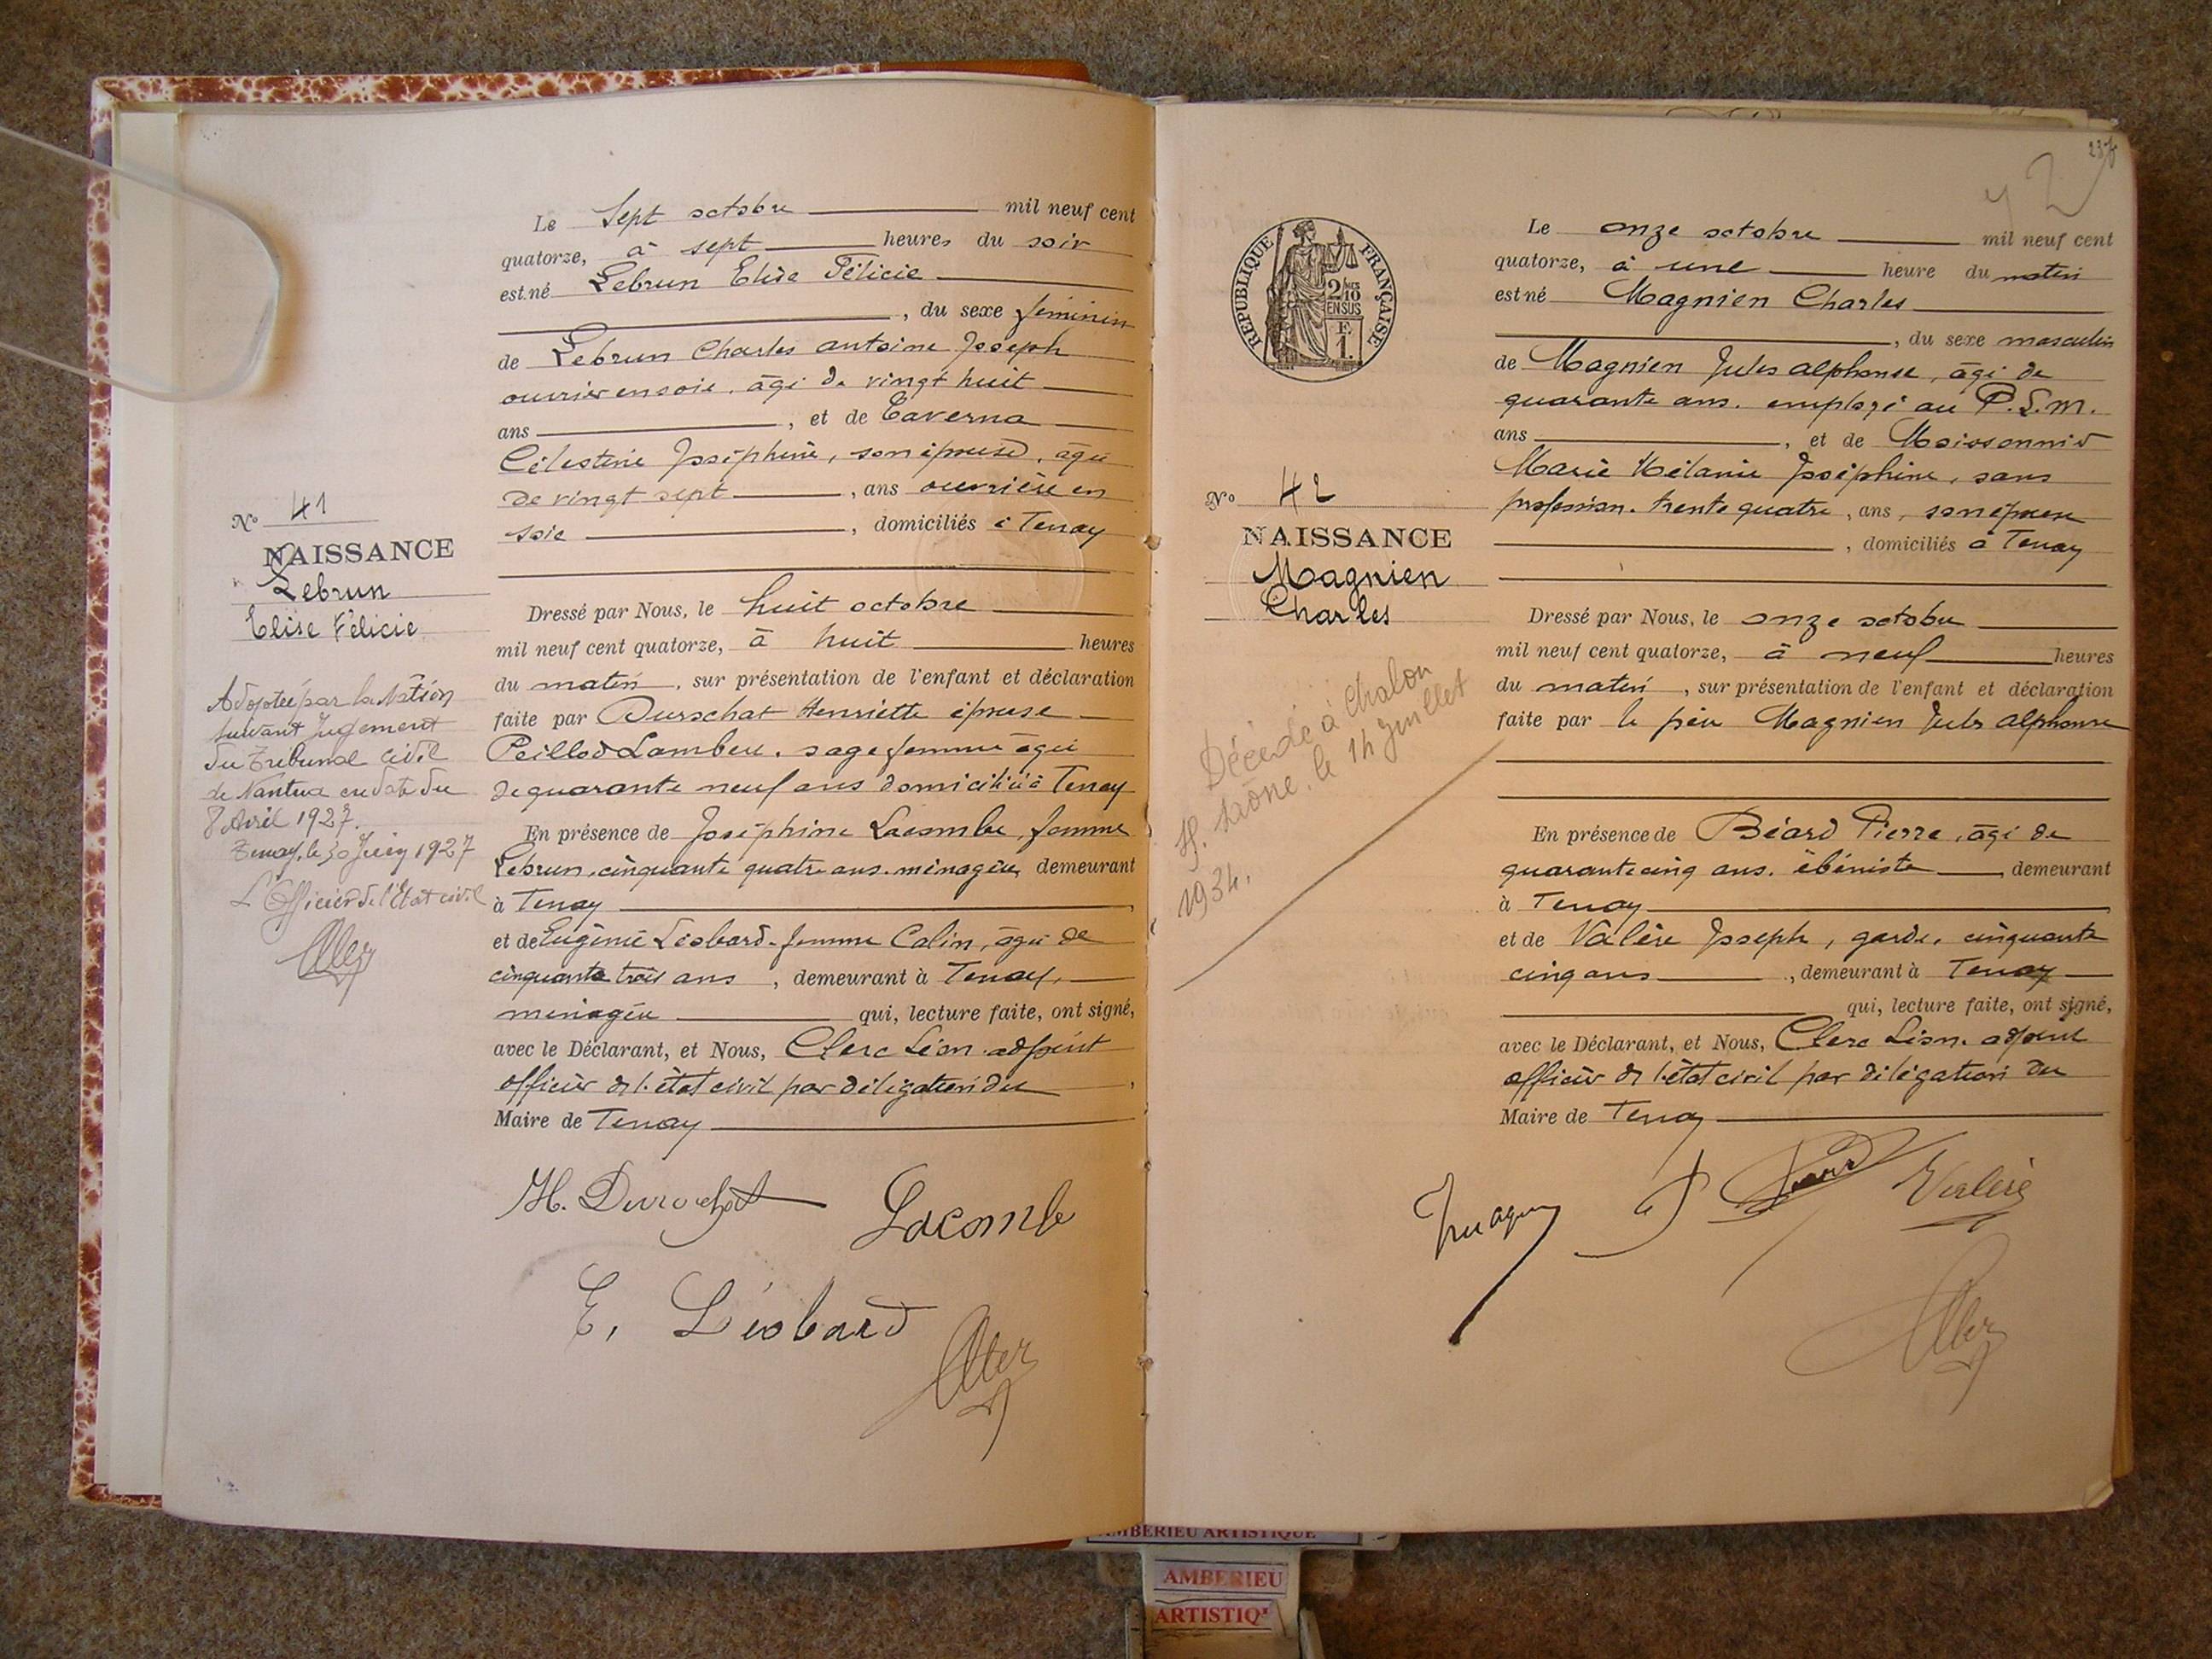 Le Sept octobre mil neuf cent
quatorze, à sept heures du soir
est né Lebrun Elise Félicie
, du sexe féminin
de Lebrun Charles Antoine Joseph
ouvrier en soie, âgé de vingt huit
ans , et de Caverna
Célestine Joséphine, son épouse, âgée
de vingt sept , ans ouvrière en
soie , domiciliés à Tenay
No 41
NAISSANCE
Lebrun
Elise Félicie
Dressé par Nous, le huit octobre
mil neuf cent quatorze, à huit heures
du matin , sur présentation de l'enfant et déclaration
faite par Durochat Henriette épouse
Peillod Lambert, sage femme âgée
de quarante neuf ans domiciliée à Tenay
En présence de Joséphine Lacombe, femme
Lebrun, cinquante quatre ans, ménagère, demeurant
à Tenay
et de Eugénie Léobard, femme Calin, âgée de
cinquante trois ans , demeurant à Tenay,
ménagère qui, lecture faite, ont signé,
avec le Déclarant, et Nous, Clerc Léon, adjoint
officier de l'état civil par délégation du
Maire de Tenay
Adoptée par la Nation
suivant Jugement
du Tribunal Civil
de Nantua en date du
8 Avril 1927.
Tenay, le 30 Juin 1927
L'Officier de l'Etat civil
H. Durochat Lacombe
E. Léobard
237
42
REPUBLIQUE FRANÇAISE
2/10
EN SUS
F.
1.
Le onze octobre mil neuf cent
quatorze, à une heure du matin
est né Magnien Charles
, du sexe masculin
de Magnien Jules Alphonse, âgé de
quarante ans, employé au P.L.M.
ans , et de Moissonnier
Marie Mélanie Joséphine, sans
profession, trente quatre , ans, son épouse
, domiciliés à Tenay
No 42
NAISSANCE
Magnien
Charles
Dressé par Nous, le onze octobre
mil neuf cent quatorze, à neuf heures
du matin , sur présentation de l'enfant et déclaration
faite par le père Magnien Jules Alphonse
En présence de Béard Pierre, âgé de
quarante cinq ans, ébéniste , demeurant
à Tenay
et de Valère Joseph, garde, cinquante
cinq ans , demeurant à Tenay
qui, lecture faite, ont signé,
avec le Déclarant, et Nous, Clerc Léon, adjoint
officier de l'état civil par délégation du
Maire de Tenay
Décédé à Chalon
s. Saône, le 14 Juillet
1934.
Magnien Valère
AMBERIEU ARTISTIQUE
AMBERIEU
ARTISTIQ